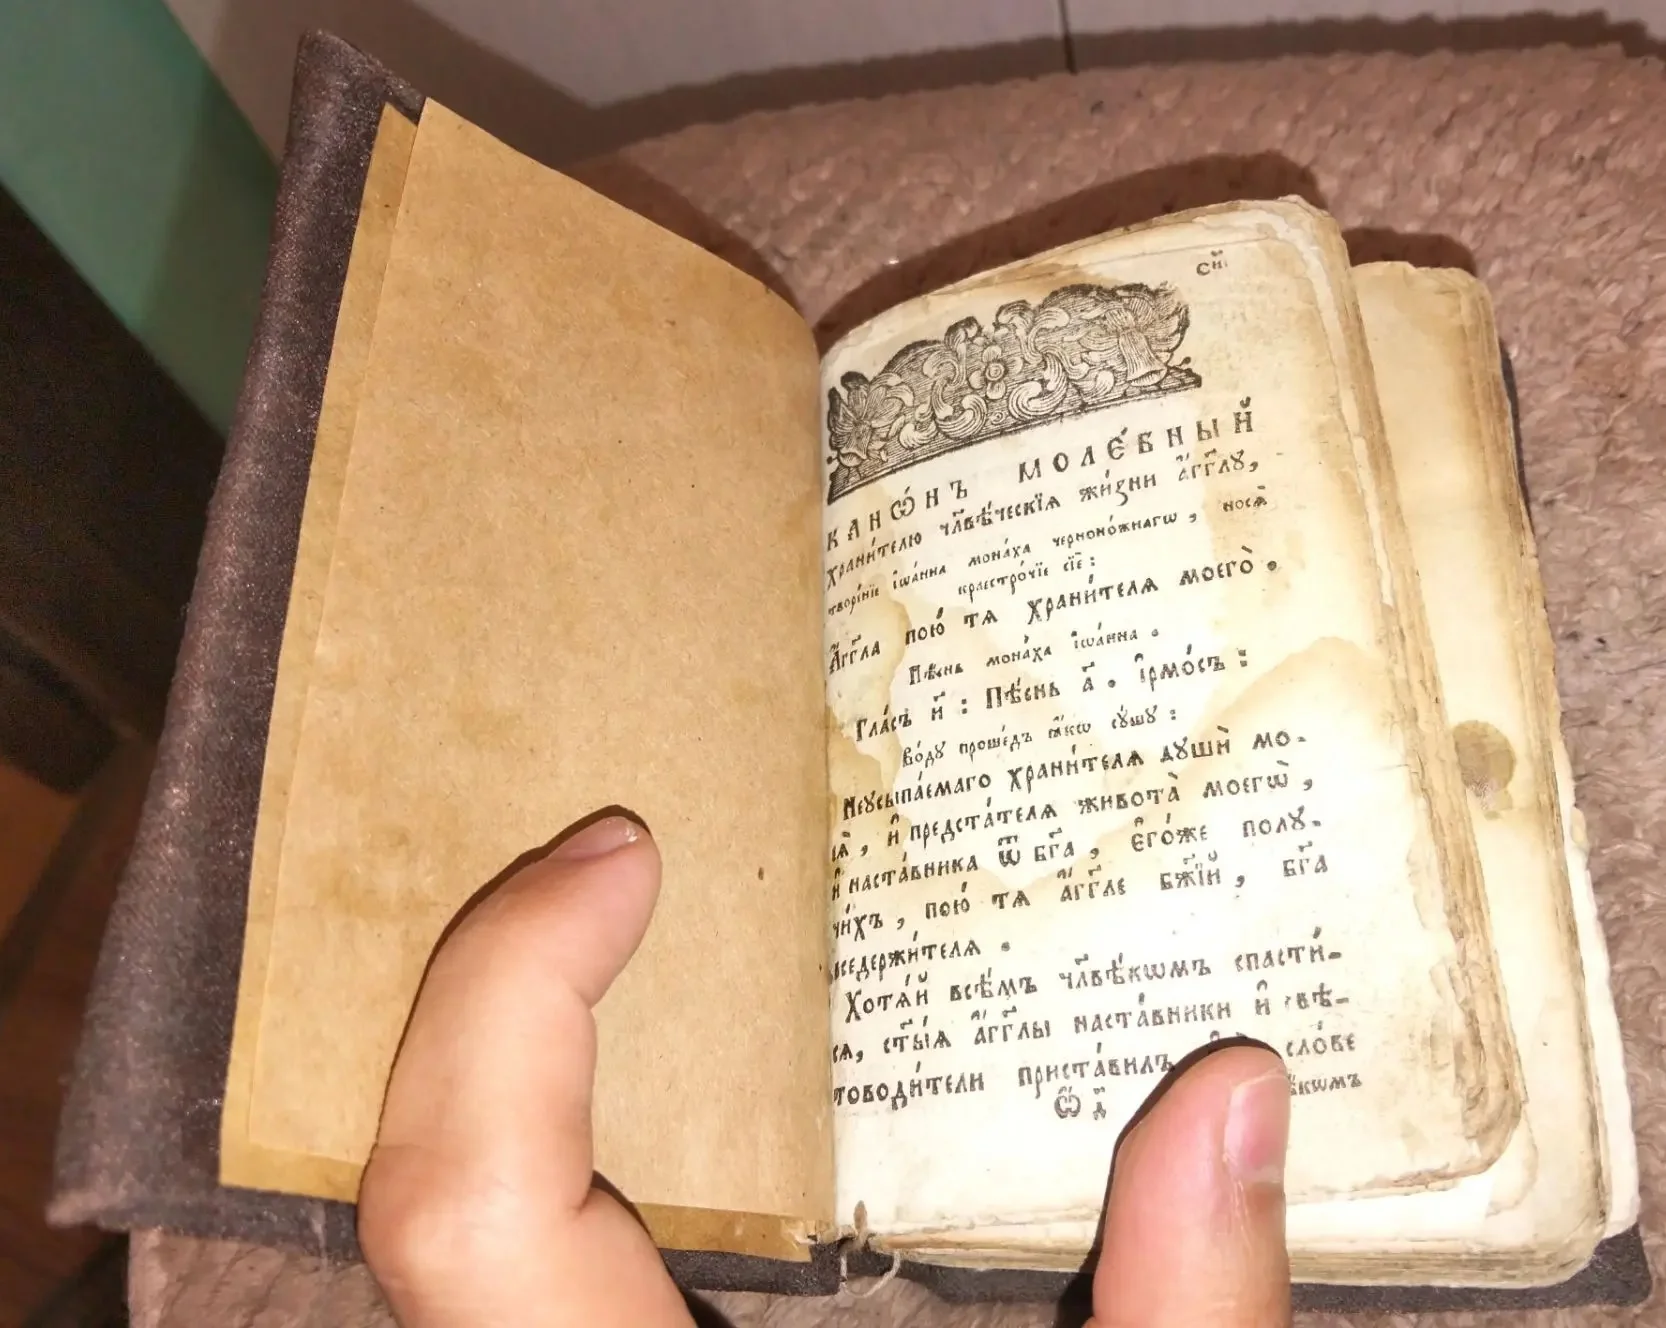 сн҃і
КАНѠ́НЪ МОЛЕ́БНЫЙ
храни́телю чл҃вѣ́ческїѧ жи́зни а҆́гг҃лꙋ,
творе́нїе і҆ѡа́нна мона́ха черноно́жнагѡ, носѧ̀
краестро́чїе сїѐ:
А҆́гг҃ла пою́ тѧ храни́телѧ моего̀.
Пѣ́снь мона́ха і҆ѡа́нна.
Гла́съ и҃: Пѣ́снь а҃. і҆рмо́съ:
Во́дꙋ проше́дъ ꙗ҆́кѡ сꙋ́шꙋ:
Неꙋсыпа́емаго храни́телѧ дꙋшѝ мо-
еѧ̀, и҆ предста́телѧ живота̀ моегѡ̀,
и҆ наста́вника ѿ бг҃а, є҆го́же полꙋ-
чи́хъ, пою́ тѧ а҆́гг҃ле бж҃їй, бг҃а
вседержи́телѧ.
Хотѧ́й всѣ́мъ чл҃вѣ́кѡмъ спасти́-
сѧ, ст҃ы́ѧ а҆́гг҃лы наста́вники и҆ свѣ-
товоди́тели приста́вилъ сло́ве
Ѿ д҃ кѡмъ